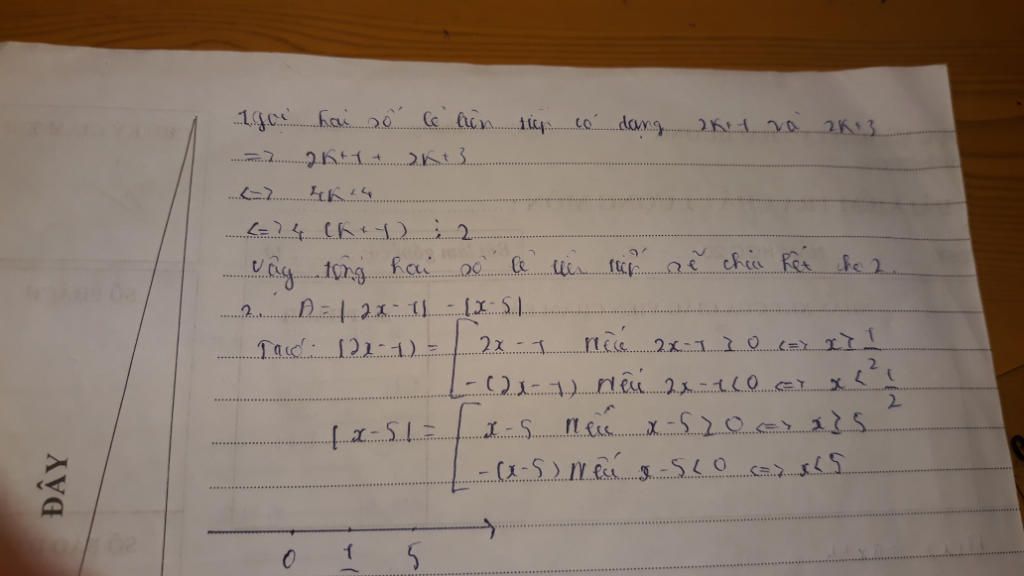 1 gọi hai số lẻ liên tiếp có dạng 2K+1 và 2K+3
=> 2K+1 + 2K+3
<=> 4K+4
<=> 4 (K+1) ⋮ 2
Vậy tổng hai số lẻ liên tiếp sẽ chia hết cho 2.
2. A = | 2x-1| - |x-5|
Ta có: |2x-1) = [ 2x-1 nếu 2x-1 ≥ 0 <=> x ≥ 1/2
-(2x-1) nếu 2x-1<0 <=> x < 1/2
|x-5| = [ x-5 nếu x-5 ≥ 0 <=> x ≥ 5
-(x-5) nếu x-5<0 <=> x<5
ĐÂY
0 1 5